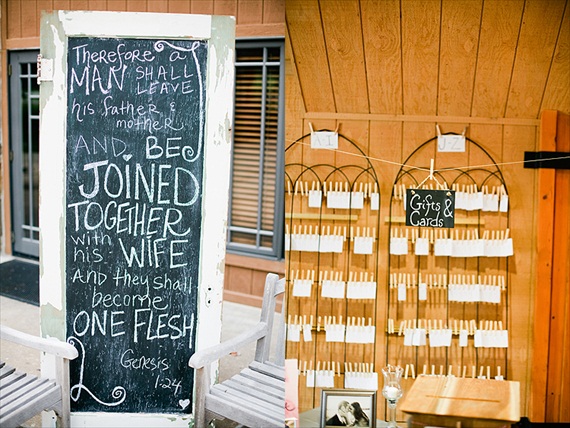 Therefore a
MAN SHALL
LEAVE
his father &
mother
AND BE
JOINED
TOGETHER
with
his WIFE
And they shall
become
ONE FLESH
Genesis
1:24
A-I
J-Z
Gifts &
Cards